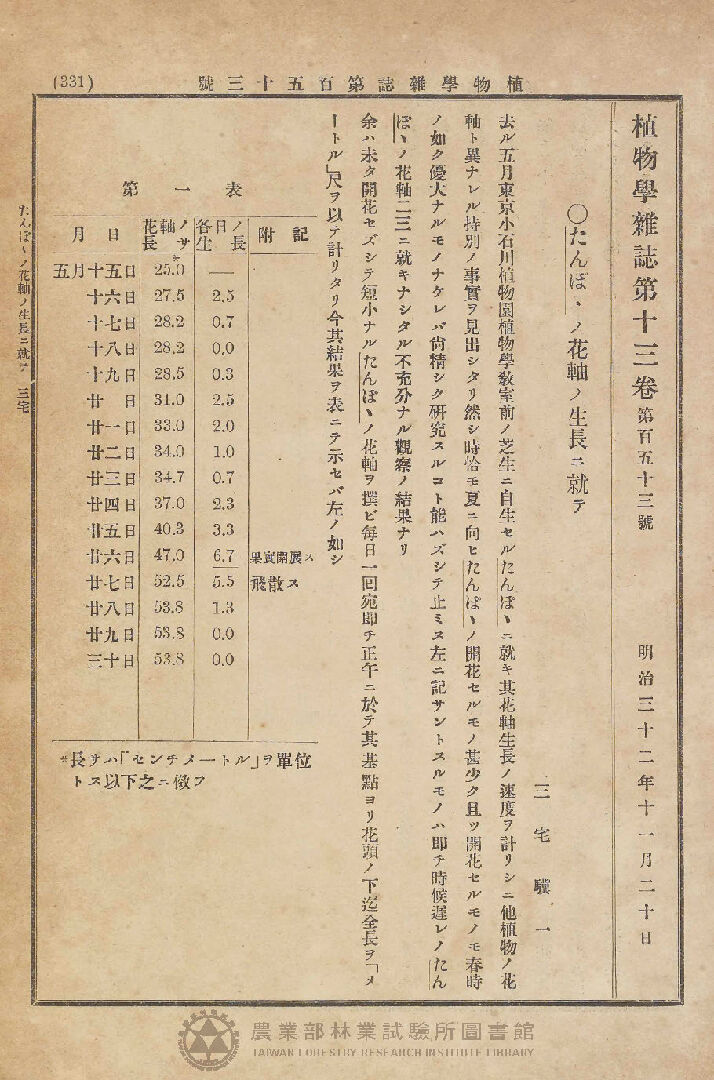 (331)
植物學雜誌第百五十三號
植物學雜誌第十三卷 第百五十三號 明治三十二年十一月二十日
〇たんぽヽノ花軸ノ生長ニ就テ
三宅驥一
去ル五月東京小石川植物園植物學敎室前ノ芝生ニ自生セルたんぽヽニ就キ其花軸生長ノ速度ヲ計リシニ他植物ノ花
軸ト異ナレル特別ノ事實ヲ見出シタリ然シ時恰モ夏ニ向ヒたんぽヽノ開花セルモノ甚少ク且ツ開花セルモノモ春時
ノ如ク優大ナルモノナケレバ尙精シク硏究スルコト能ハズシテ止ミヌ左ニ記サントスルモノハ即チ時候遲レノたん
ぽヽノ花軸二三ニ就キナシタル不充分ナル觀察ノ結果ナリ
余ハ未タ開花セズシテ短小ナルたんぽヽノ花軸ヲ撰ビ每日一回宛即チ正午ニ於テ其基點ヨリ花頭ノ下迄全長ヲ「メ
ートル」尺ヲ以テ計リタリ今其結果ヲ表ニテ示セバ左ノ如シ
第一表
月日 花軸ノ長サ* 各日ノ生長 附記
五月十五日 25.0 —
十六日 27.5 2.5
十七日 28.2 0.7
十八日 28.2 0.0
十九日 28.5 0.3
廿日 31.0 2.5
廿一日 33.0 2.0
廿二日 34.0 1.0
廿三日 34.7 0.7
廿四日 37.0 2.3
廿五日 40.3 3.3
廿六日 47.0 6.7 果實開展ス
廿七日 52.5 5.5 飛散ス
廿八日 53.8 1.3
廿九日 53.8 0.0
三十日 53.8 0.0
*長サハ「センチメートル」ヲ單位
トス以下之ニ傚フ
たんぽヽノ花軸ノ生長ニ就テ 三宅
農業部林業試驗所圖書館
TAIWAN FORESTRY RESEARCH INSTITUTE LIBRARY